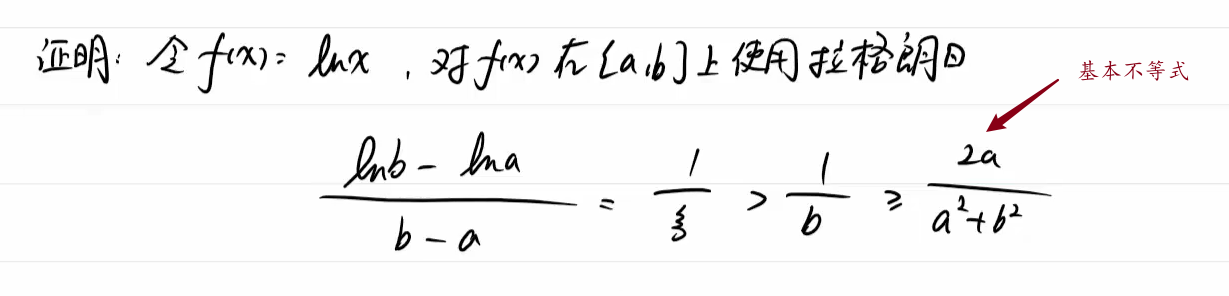 证明: 令 f(x) = lnx , 对 f(x) 在 [a,b] 上使用拉格朗日
基本不等式
(lnb - lna)/(b - a) = 1/ξ > 1/b ≥ 2a/(a²+b²)